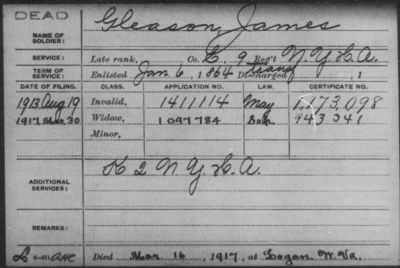 DEAD
Gleason, James
NAME OF SOLDIER:
SERVICE: Late rank, Co. L, 9 Reg't N.Y.H.A.
TERM OF SERVICE: Enlisted Jan 6, 1864 Discharged trans , 1
DATE OF FILING. CLASS. APPLICATION NO. LAW. CERTIFICATE NO.
1913 Aug 19 Invalid, 1411114 May 1,173,098
1917, Mar. 30 Widow, 1097784 943341
Minor,
ADDITIONAL SERVICES: K 2 N.Y.H.A.
REMARKS:
Died Mar. 16, 1917, at Logan W. Va.